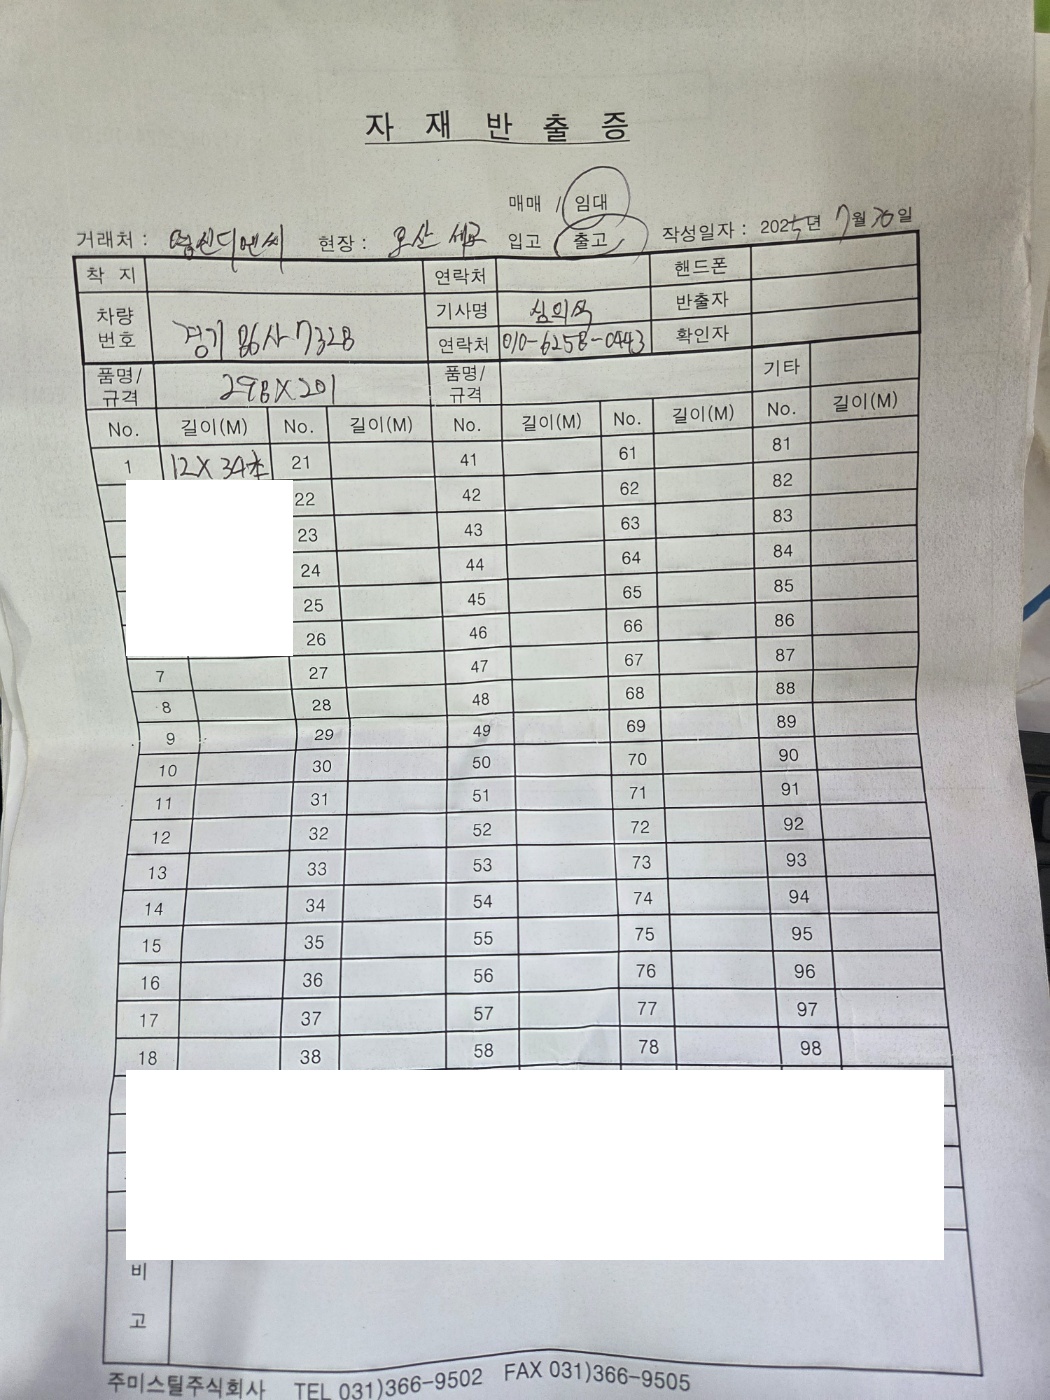 자 재 반 출 증
매매 / 임대
거래처 : 현장 : 오산 세교 입고 출고 작성일자 : 2025년 7월 26일
착 지 연락처 핸드폰
차량 번호 경기 86사 7328 기사명 심의석 반출자
연락처 010-6258-0443 확인자
품명/ 규격 298X201 품명/ 규격 기타
No. 길이(M) No. 길이(M) No. 길이(M) No. 길이(M) No. 길이(M)
1 12X 34本 21 41 61 81
22 42 62 82
23 43 63 83
24 44 64 84
25 45 65 85
26 46 66 86
7 27 47 67 87
8 28 48 68 88
9 29 49 69 89
10 30 50 70 90
11 31 51 71 91
12 32 52 72 92
13 33 53 73 93
14 34 54 74 94
15 35 55 75 95
16 36 56 76 96
17 37 57 77 97
18 38 58 78 98
비
고
주미스틸주식회사 TEL 031)366-9502 FAX 031)366-9505